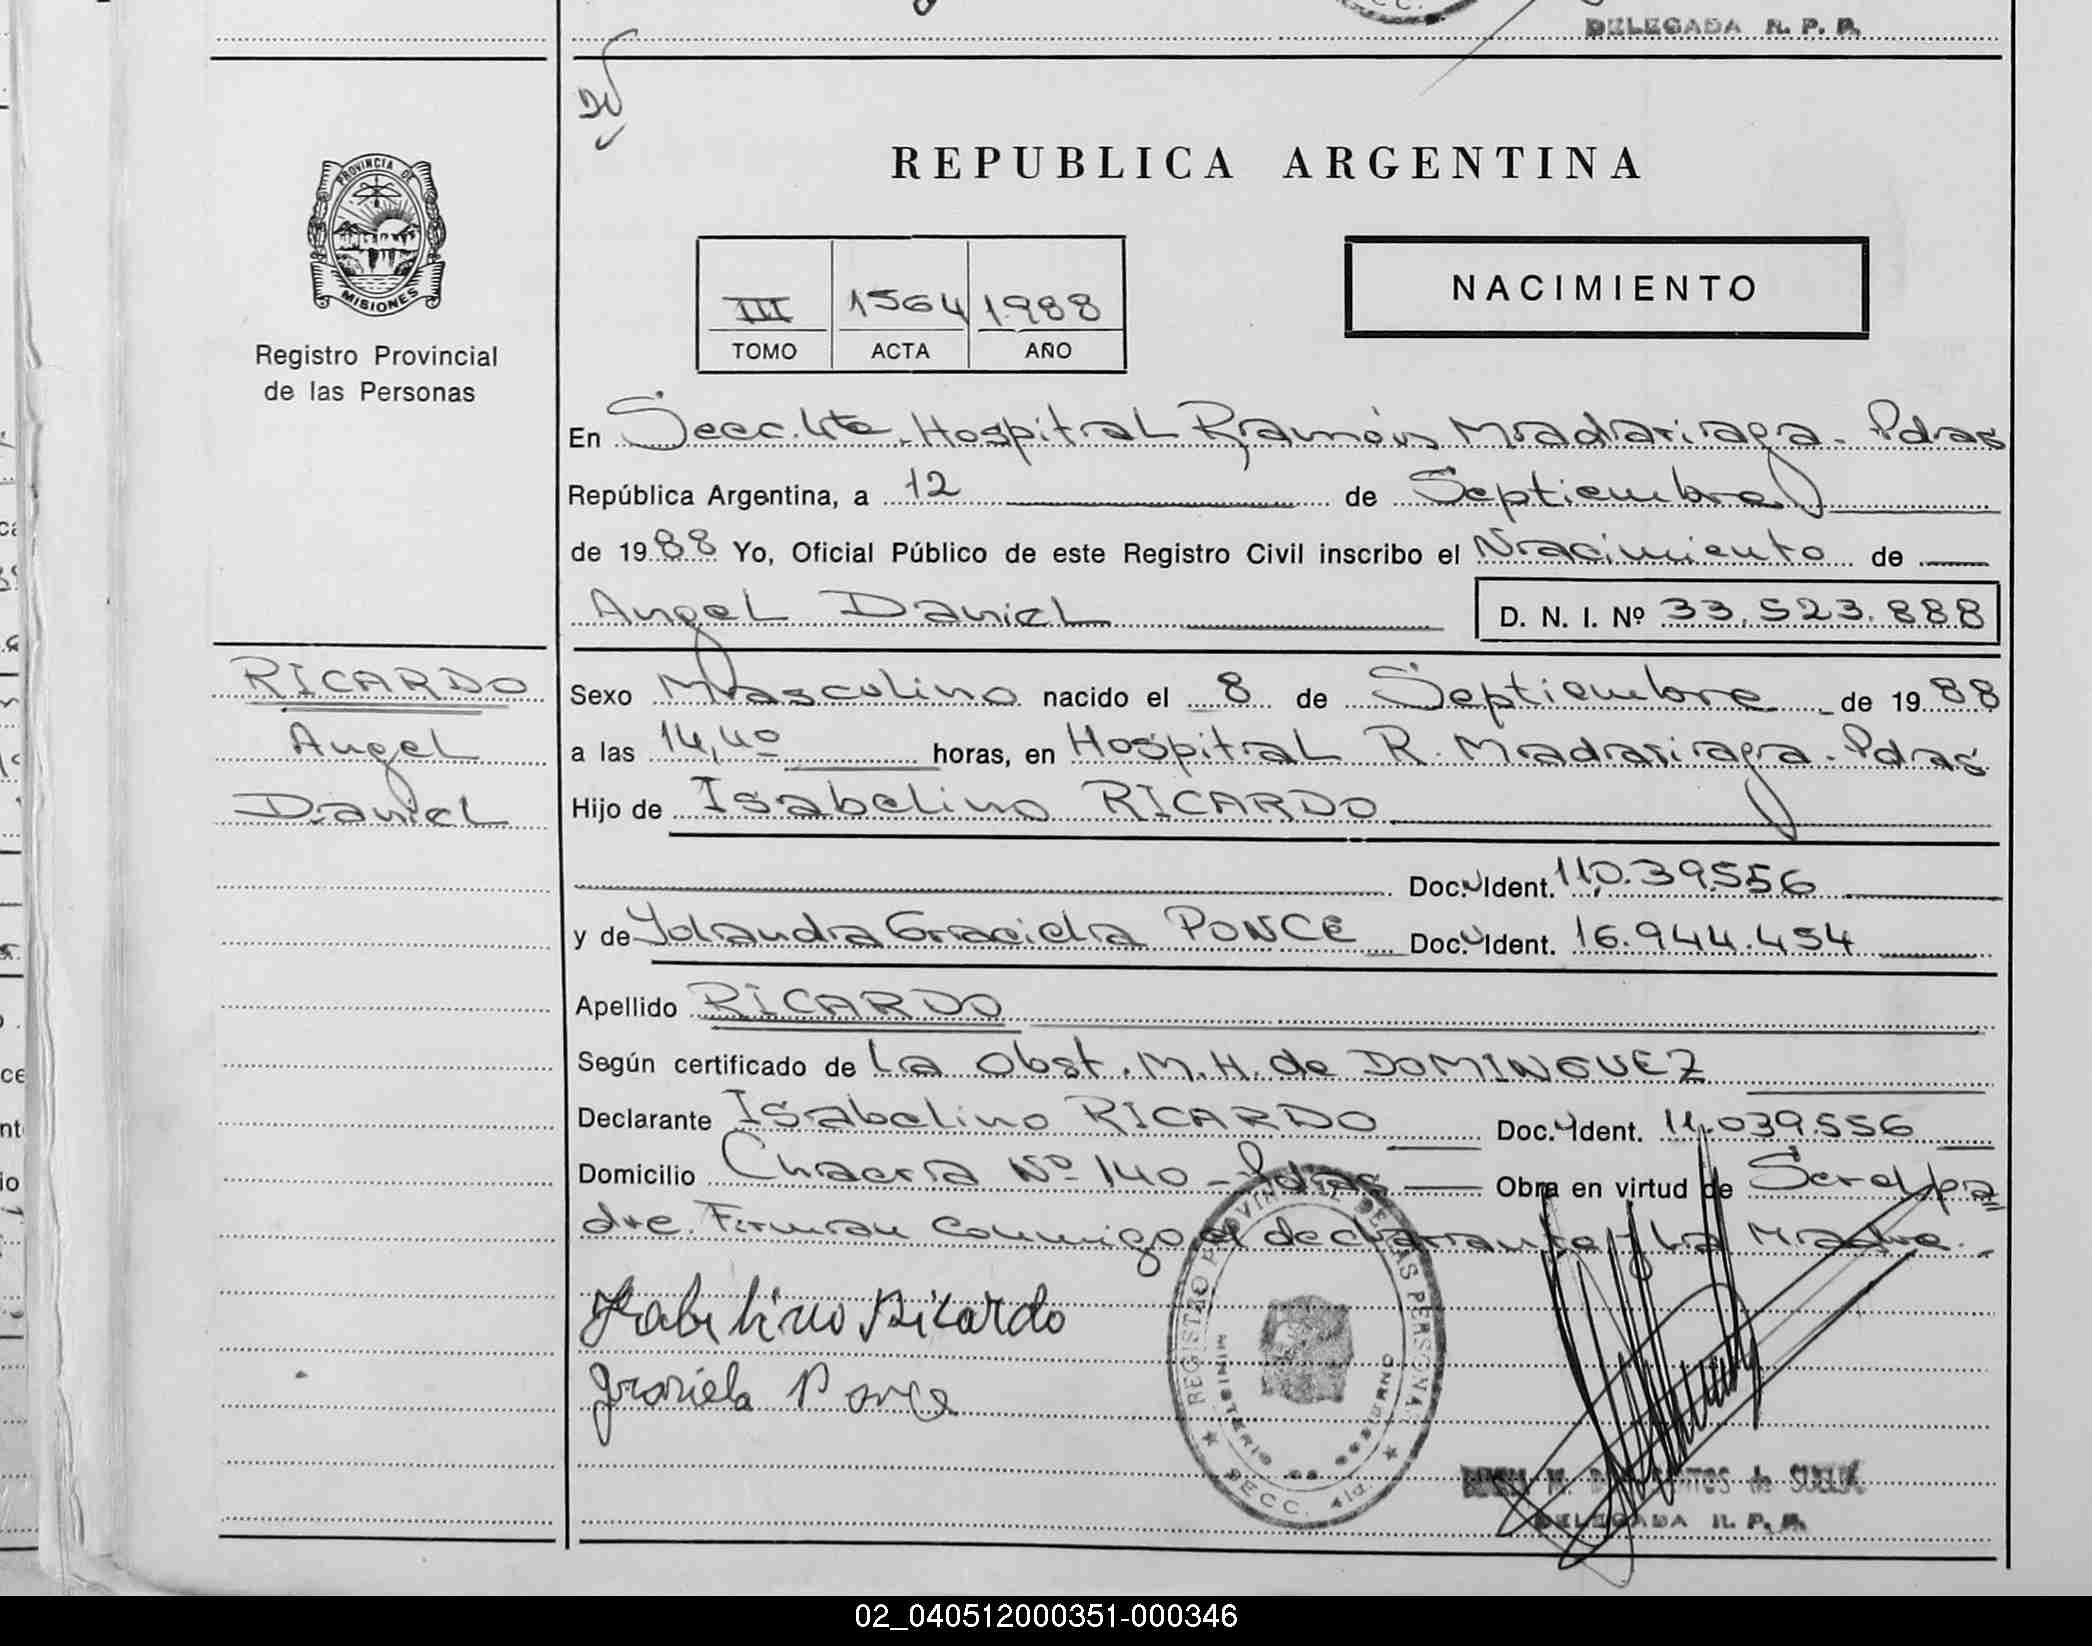 DELEGADA R. P. P.
REPUBLICA ARGENTINA
PROVINCIA DE
MISIONES
Registro Provincial
de las Personas
III 1564 1988
TOMO ACTA AÑO
NACIMIENTO
En Secc. 4ta. Hospital Ramón Madariaga. Pdas
República Argentina, a 12 de Septiembre
de 1988 Yo, Oficial Público de este Registro Civil inscribo el Nacimiento de
Angel Daniel D. N. I. Nº 33.523.888
RICARDO
Angel
Daniel
Sexo Masculino nacido el 8 de Septiembre de 1988
a las 14,40 horas, en Hospital R. Madariaga. Pdas
Hijo de Isabelino RICARDO
Doc. Ident. 11.039.556
y de Yolanda Graciela PONCE Doc. Ident. 16.944.454
Apellido RICARDO
Según certificado de La Obst. M. H. de DOMINGUEZ
Declarante Isabelino RICARDO Doc. Ident. 11.039.556
Domicilio Chacra Nº 140 - Pdas Obra en virtud de Ser el pa
dre. Firman conmigo el declarante y La Madre.
Isabelino Ricardo
Graciela Ponce
REGISTRO PROVINCIAL DE LAS PERSONAS
MINISTERIO DE GOBIERNO
SECC. 4ta.
M. DOS SANTOS de
DELEGADA R. P. P.
02_040512000351-000346